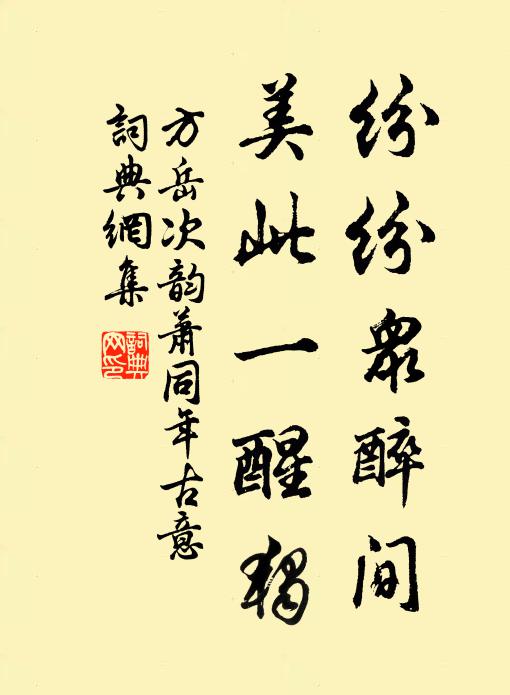 纷纷眾醉间
美此一醒獨
方岳次韵萧同年古意
詞典網集
詞典
网印